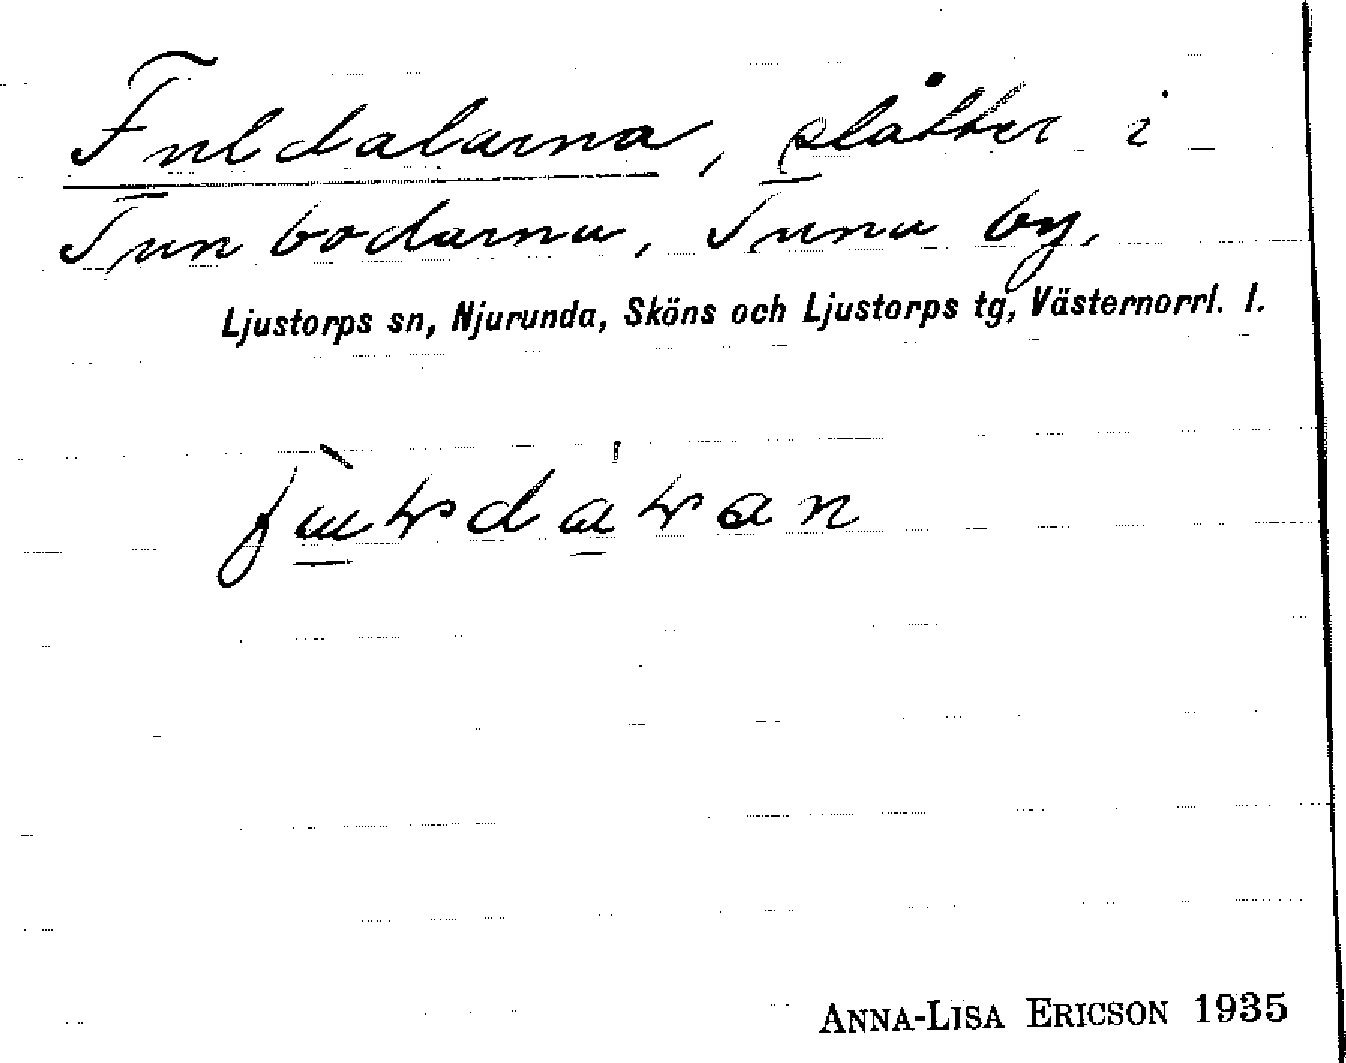 Fuldalarna, slåtter i
Tunbodarna, Tuna by,
Ljustorps sn, Njurunda, Sköns och Ljustorps tg, Västernorrl. l.
ANNA-LISA ERICSON 1935